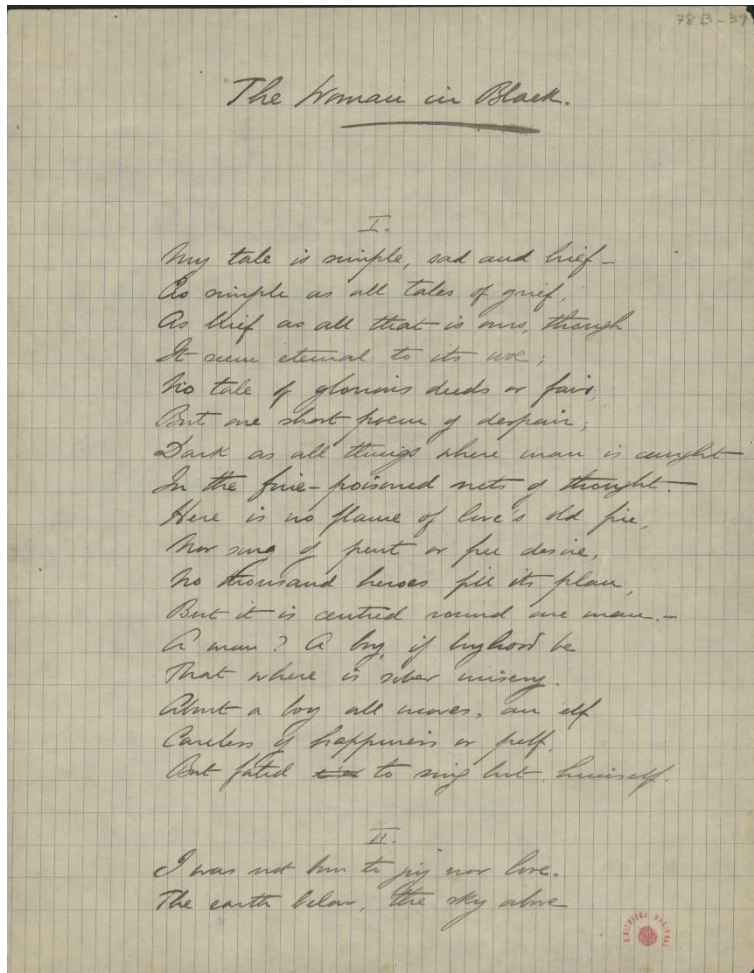 78B-39
The Woman in Black.
I.
My tale is simple, sad and brief –
As simple as all tales of grief,
As brief as all that is ours, though
It seem eternal to its woe;
No tale of glorious deeds or fair,
But one short poem of despair;
Dark as all things where man is caught
In the fine-poisoned nets of thought.
Here is no flame of love's old fire,
Nor song of pent or free desire,
No thousand heroes fill its plan,
But it is centred round one man. –
A man? A boy, if boyhood be
That where is sober misery.
About a boy all moves, an elf
Careless of happiness or pelf,
But fated to sing but himself.
II.
I was not born to joy nor love.
The earth below, the sky above
BIBLIOTECA NACIONAL